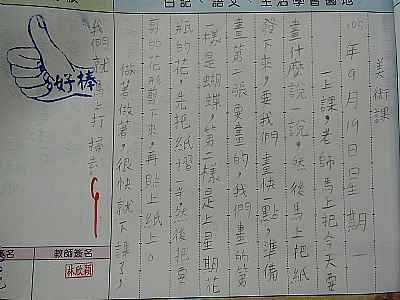 日記、語文、生活學習園地
美術課
105年9月19日星期一
一上課，老師馬上把今天要
畫什麼說一說，然後馬上把紙
發下來，要我們畫快一點，準備
畫第二張要畫的，我們畫的第
一樣是蝴蝶，第二樣是上星期花
瓶的花，先把紙摺一半，然後把要
剪的花形剪下來，再貼上紙上。
做著做著，很快就下課了，
我們就馬上打掃去。
好棒
教師簽名
林欣穎